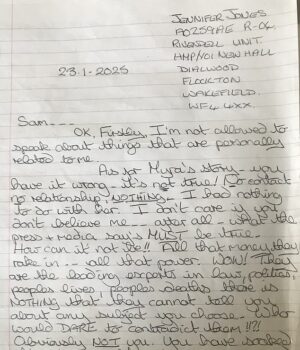 JENNIFER JONES
R-04
RIVENDELL UNIT.
HMP/YOI NEW HALL
DIALWOOD
FLOCKTON
WAKEFIELD.
WF4 4XX.
23.1-2025
Sam---
OK, Firstly, I'm not allowed to
speak about things that are personally
related to me.
As for Myra's story - you
have it wrong - it's not true! No contact
no relationship, NOTHING - I had nothing
to do with her. I don't care if you
don't believe me - after all - what the
press & media say's MUST be true -
How can it not be!! All that money they
rake in - all that power. WOW! They
are the leading experts in law, politics,
peoples lives, peoples deaths, there is
NOTHING that they cannot tell you
about any subject you choose - Who
would DARE to contradict them !!?!
Obviously NOT you. You have